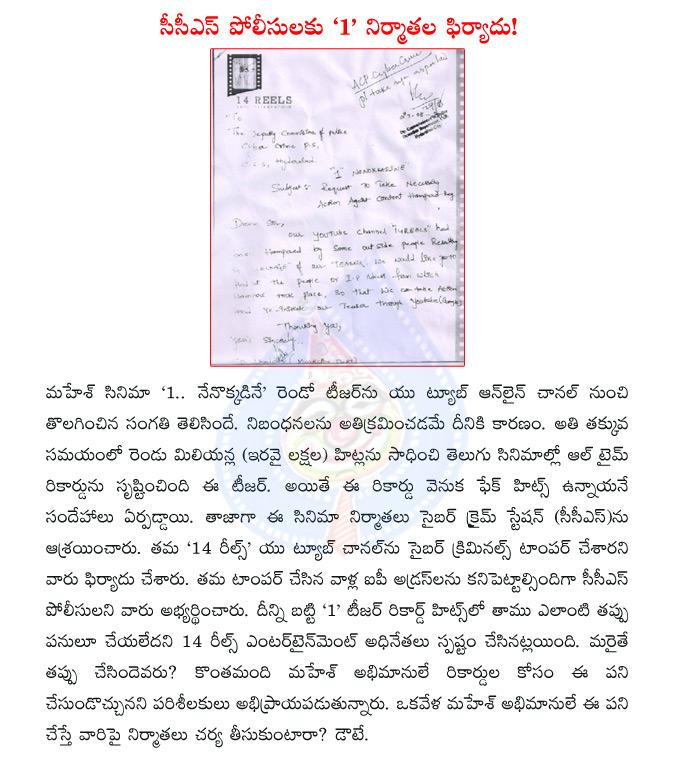 సీసీఎస్ పోలీసులకు ‘1’ నిర్మాతల ఫిర్యాదు!
ACP Cyber Crime
14 REELS
To
The Deputy Commissioner of police
Cyber Crime P.S,
C.C.S, Hyderabad.
"1" NENOKKADINE
Subject: Request To Take Necessary
Action Against Content
Dear Sir,
our YOUTUBE channel "14REELS" had
by some out side people
of our "TEASER". We would like you to
the people or I.P which from which
took place, so that we can take Action
our Teaser through Youtube
Thanking you,
మహేశ్ సినిమా ‘1.. నేనొక్కడినే’ రెండో టీజర్‌ను యు ట్యూబ్ ఆన్‌లైన్ చానల్ నుంచి
తొలగించిన సంగతి తెలిసిందే. నిబంధనలను అతిక్రమించడమే దీనికి కారణం. అతి తక్కువ
సమయంలో రెండు మిలియన్ల (ఇరవై లక్షల) హిట్లను సాధించి తెలుగు సినిమాల్లో ఆల్ టైమ్
రికార్డును సృష్టించింది ఈ టీజర్. అయితే ఈ రికార్డు వెనుక ఫేక్ హిట్స్ ఉన్నాయనే
సందేహాలు ఏర్పడ్డాయి. తాజాగా ఈ సినిమా నిర్మాతలు సైబర్ క్రైమ్ స్టేషన్ (సీసీఎస్)ను
ఆశ్రయించారు. తమ ‘14 రీల్స్’ యు ట్యూబ్ చానల్‌ను సైబర్ క్రిమినల్స్ టాంపర్ చేశారని
వారు ఫిర్యాదు చేశారు. తమ టాంపర్ చేసిన వాళ్ల ఐపీ అడ్రస్‌లను కనిపెట్టాల్సిందిగా సీసీఎస్
పోలీసులని వారు అభ్యర్థించారు. దీన్ని బట్టి ‘1’ టీజర్ రికార్డ్ హిట్స్‌లో తాము ఎలాంటి తప్పు
పనులూ చేయలేదని 14 రీల్స్ ఎంటర్‌టైన్‌మెంట్ అధినేతలు స్పష్టం చేసినట్లయింది. మరైతే
తప్పు చేసిందెవరు? కొంతమంది మహేశ్ అభిమానులే రికార్డుల కోసం ఈ పని
చేసుండొచ్చునని పరిశీలకులు అభిప్రాయపడుతున్నారు. ఒకవేళ మహేశ్ అభిమానులే ఈ పని
చేస్తే వారిపై నిర్మాతలు చర్య తీసుకుంటారా? డౌటే.